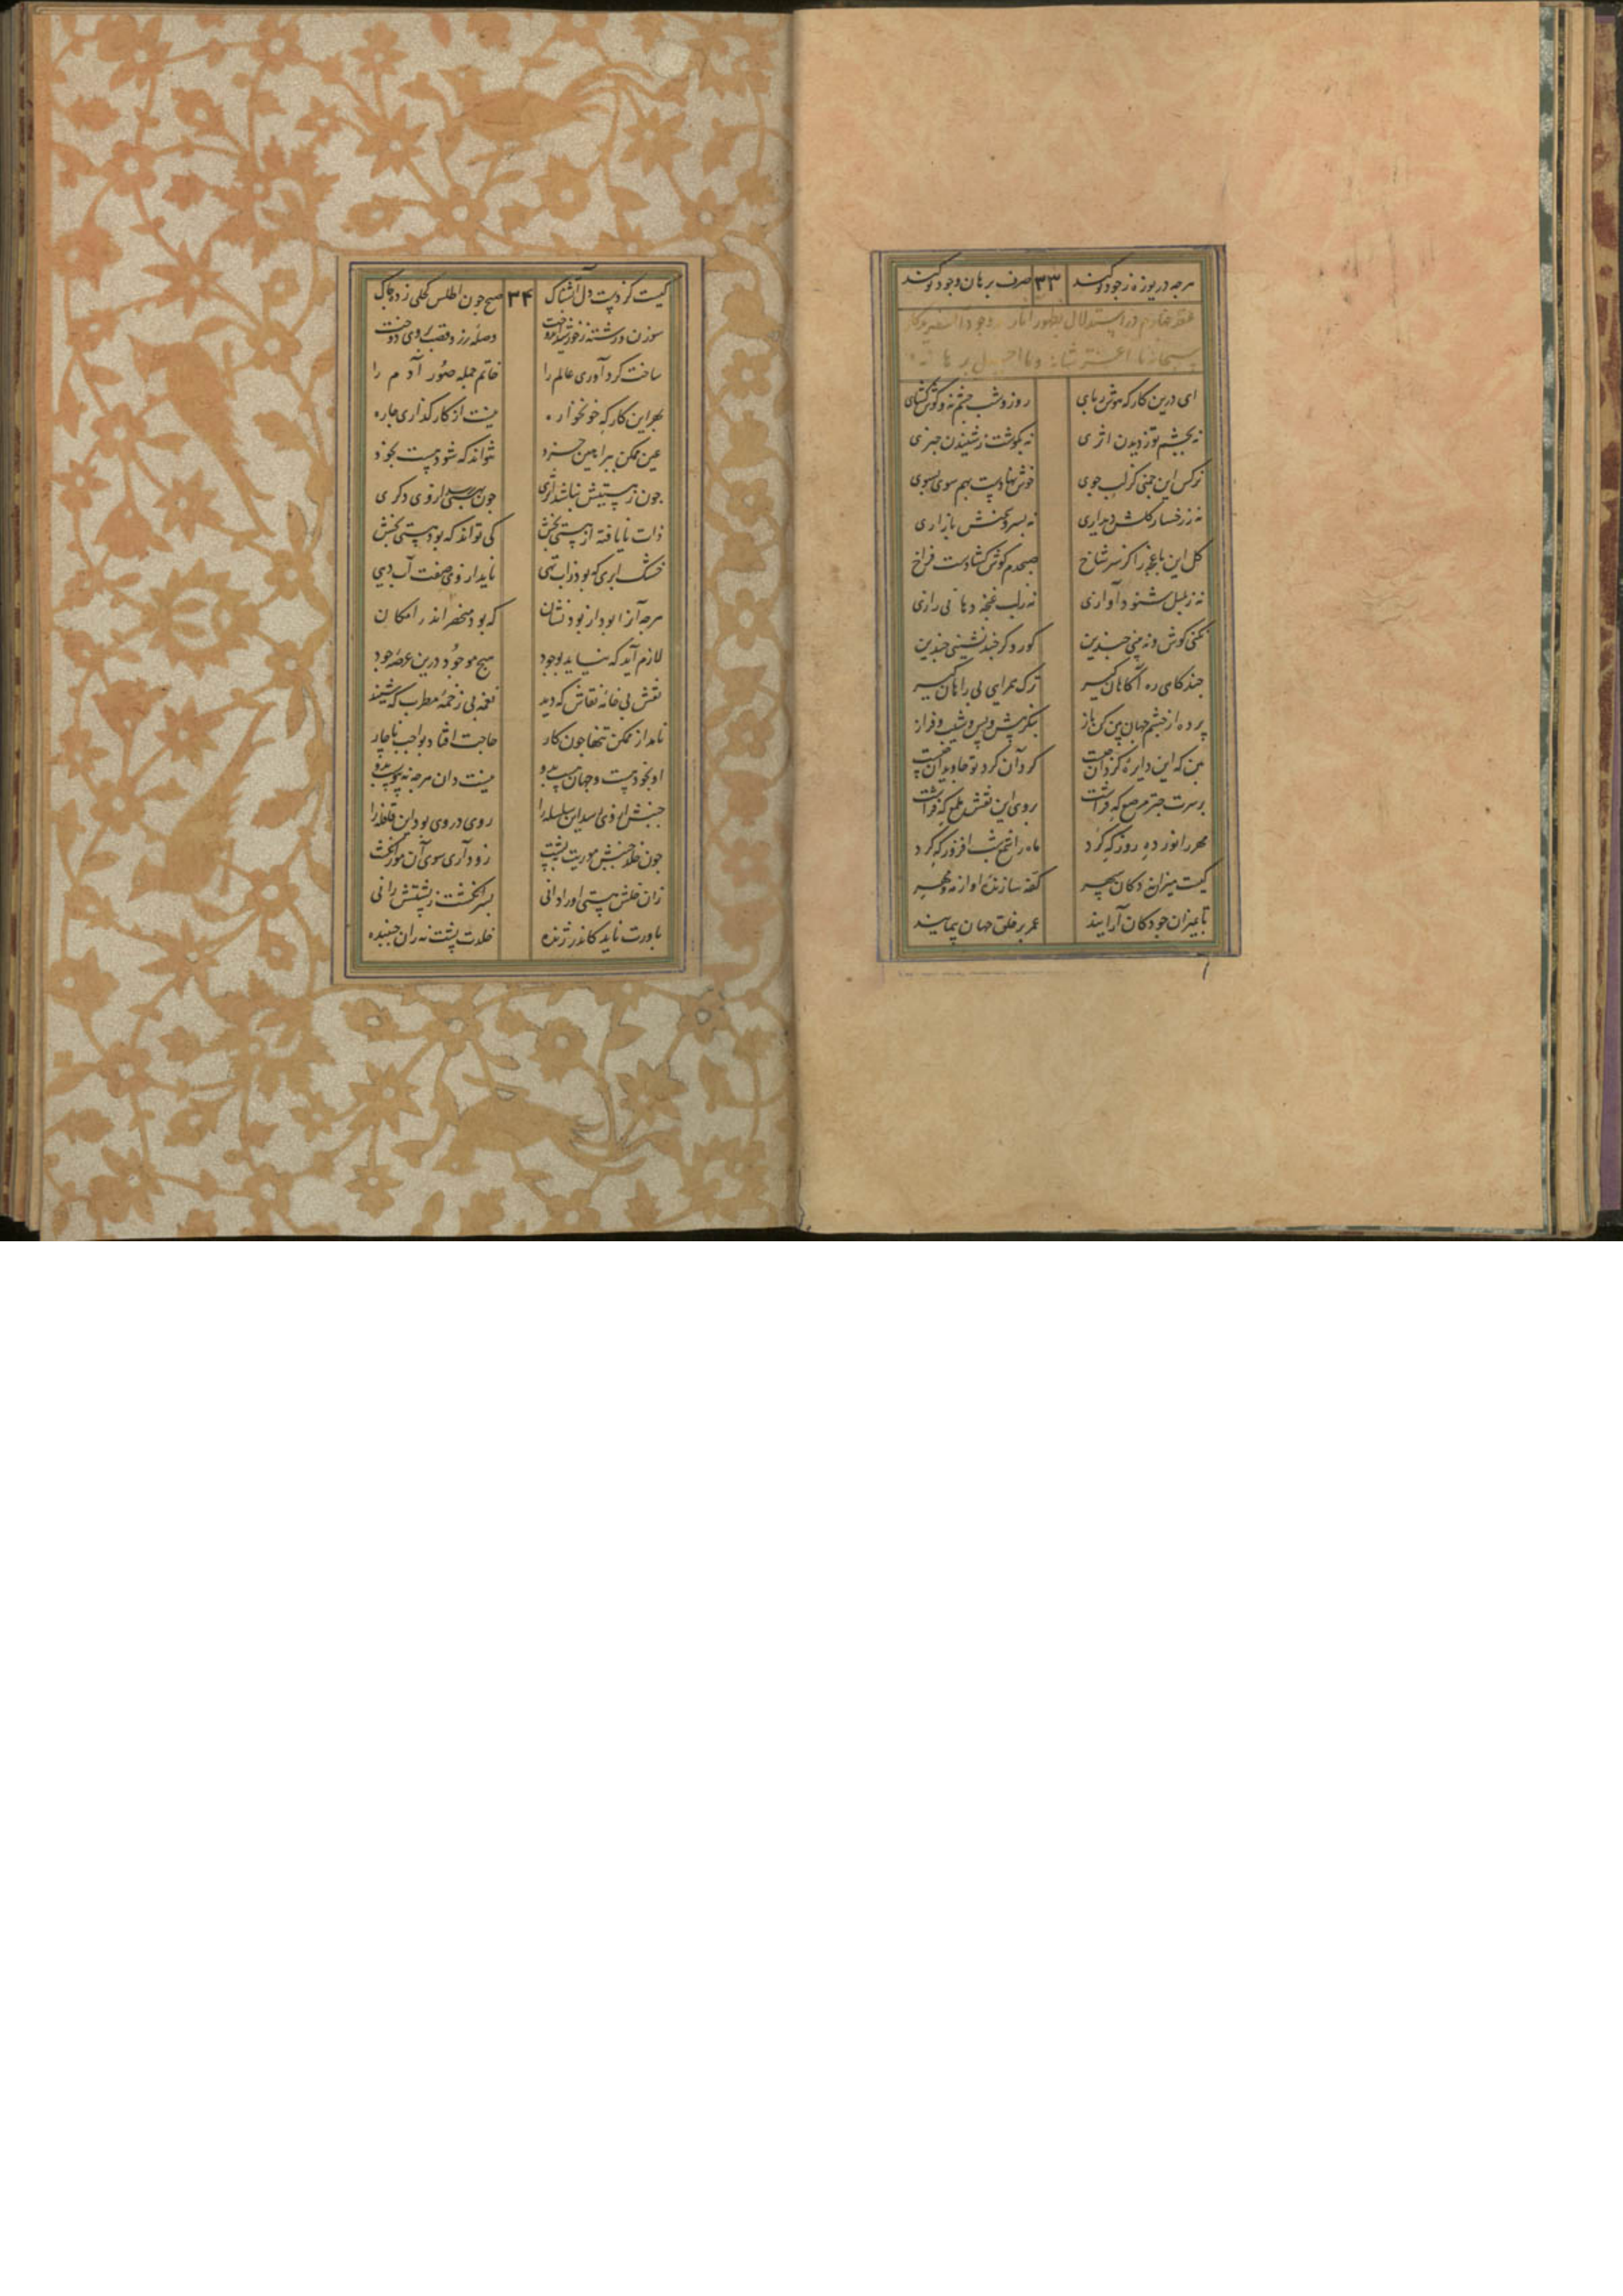 هرچه دریوزه ز جود تو کنند ۳۳ صرف برهان وجود تو کنند
عقد چهارم در استدلال بظهور آثار بر وجود آفریدگار
سبحانه ما اعظم شانه وما اجل برهانه
ای درین کارکه هوش ربای روز و شب چشم نه و گوش گشای
نه بچشم تو ز دیدن اثری نه بگوشت ز شنیدن خبری
نرگس این چمنی کز لب جوی خوش نهادست بهم سوی بسوی
نه ز رخسار گلش دیداری نه بسرو چمنش بازاری
گل این باغچه را کز سر شاخ صبحدم گوش گشادست فراخ
نه ز بلبل شنود آوازی نه ز لب غنچه دهانی رازی
نکنی گوش و نه بینی چندین کور و کر چند نشینی چندین
چند گامی ره آگاهان گیر ترک همراهی بی راهان گیر
پرده از چشم جهان بین کن باز بنگر پیش و پس و شیب و فراز
بین که این دایره گردان چیست گرد آن گرد تو جاویدان چیست
بر سرت چتر مرصع که فراشت روی این نقش ملمع که نگاشت
مهر را نور ده روز که کرد ماه را شمع شب افروز که کرد
کیست میزان نه دکان سپهر کفه سازنده او از مه و مهر
تا بمیزان چو دکان آرایند عمر بر خلق جهان پیمایند
کیست کز دست دل آتشناک ۳۴ صبح چون اطلس کحلی زده چاک
سوزن و رشته ز خور ساخته وصله زر و قصب روی دوخت
ساخت گرد آوری عالم را خاتم جمله صور آدم را
بهر این کارکه خونخواره نیست از کارگذاری چاره
عین ممکن ببراهین خرد نتواند که شود هست بخود
چون ز هستیش نباشد اثری چون به هستی رسد از وی دگری
ذات نایافته از هستی بخش کی تواند که بود هستی بخش
خشک ابری که بود ز آب تهی ناید از وی صفت آب دهی
هرچه آنرا بود از بود نشان که بود منحصر اندر امکان
لازم آید که نیاید بوجود هیچ موجود درین عرصه جود
نقش بی خامه نقاش که دید نغمه بی زخمه مطرب که شنید
نامد از ممکن تنها چون کار حاجت افتاد بواجب ناچار
او بخود هست و جهان هست بدو نیست دان هرچه نه پیوست بدو
جنبش از وی رسد این سلسله را روی در وی بود این قافله را
چون خلد جنبش موریت بپشت زود آری سوی آن مور انگشت
زان خلش هستی او را دانی بسر انگشت ز پشتش رانی
باورت ناید کاندر ژنده خلدت پشت نه زان جنبنده